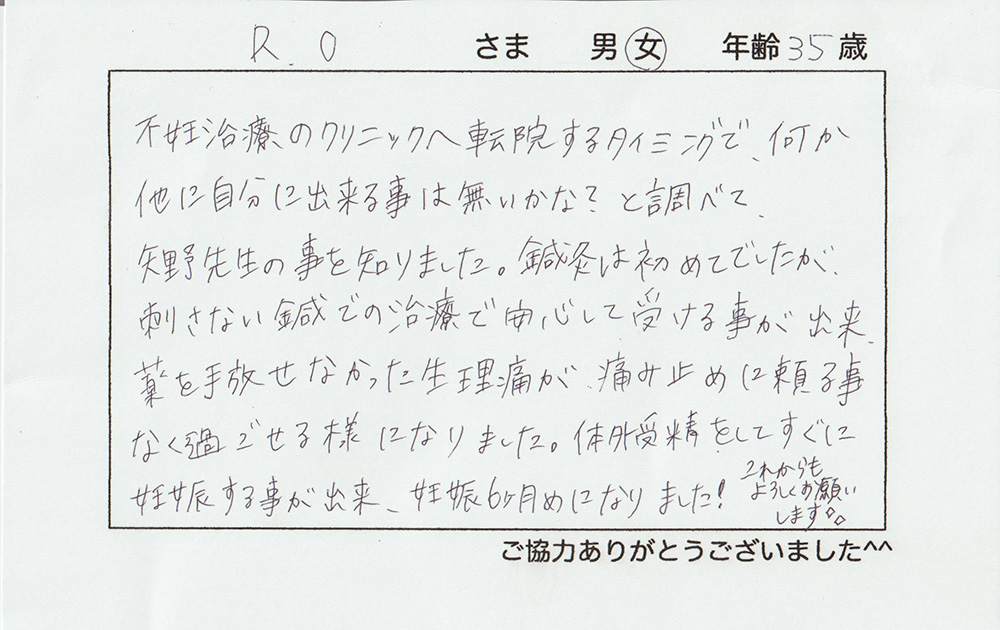 R.O さま 男 女 年齢35歳
不妊治療のクリニックへ転院するタイミングで、何か
他に自分に出来る事は無いかな？と調べて、
矢野先生の事を知りました。鍼灸は初めてでしたが、
刺さない鍼での治療で安心して受ける事が出来、
薬を手放せなかった生理痛が、痛み止めに頼る事
なく過ごせる様になりました。体外受精をしてすぐに
妊娠する事が出来、妊娠6ヶ月めになりました！
これからも
よろしくお願い
します
ご協力ありがとうございました^^